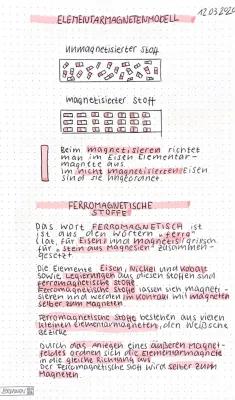 12.03.2020
ELEMENTARMAGNETENMODELL
unmagnetisierter Stoff
magnetisierter Stoff
Beim magnetisieren richtet
man im Eisen Elementar-
magnete aus.
Im nicht magnetisierten Eisen
sind sie ungeordnet.
FERROMAGNETISCHE
STOFFE
DAS WORT FERROMAGNETISCH ist
ist aus den Wörtern „ferro"
(lat. für Eisen) und magnetis (griech.
für „Stein aus Magnesien" zusammen-
gesetzt.
Die Elemente Eisen, Nickel und Kobalt
sowie Legierungen aus diesen Stoffen sind
ferromagnetische Stoffe.
Ferromagnetische Stoffe lassen sich magneti-
sieren und werden im Kontakt mit Magneten
selber zum Magneten.
Ferromagnetische Stoffe bestehen aus vielen
kleinen Elementarmagneten, den Weißsche
Bezirke.
Durch das Anlegen eines äußeren Magnet-
feldes ordnen sich die Elementarmagnete
in die gleiche Richtung aus.
Der ferromagnetische Stoff wird selber zum
Magneten.